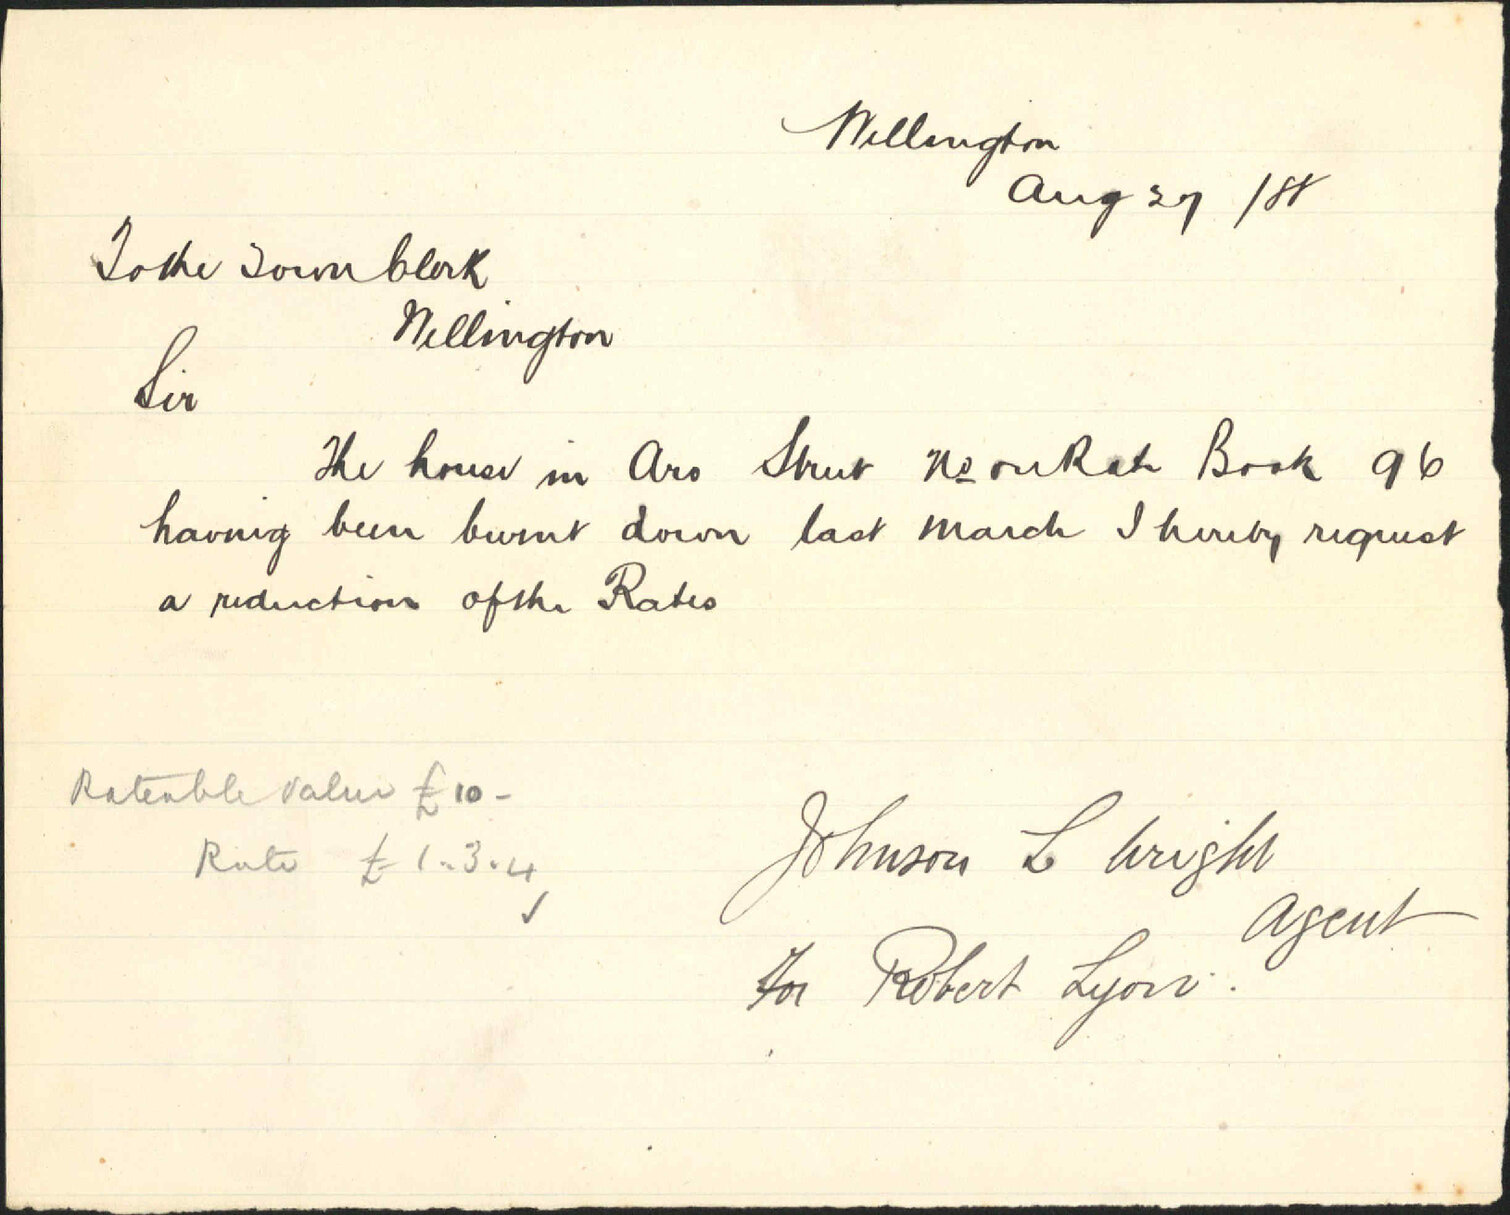 Wellington
Aug 27 /88
To the Town Clerk
Wellington
Sir
The house in Aro Street No on Rate Book 96
having been burnt down last March I hereby request
a reduction of the Rates
Rateable Value £10 -
Rate £1..3.4
✓
Johnson L Wright
Agent
For Robert Lyon.